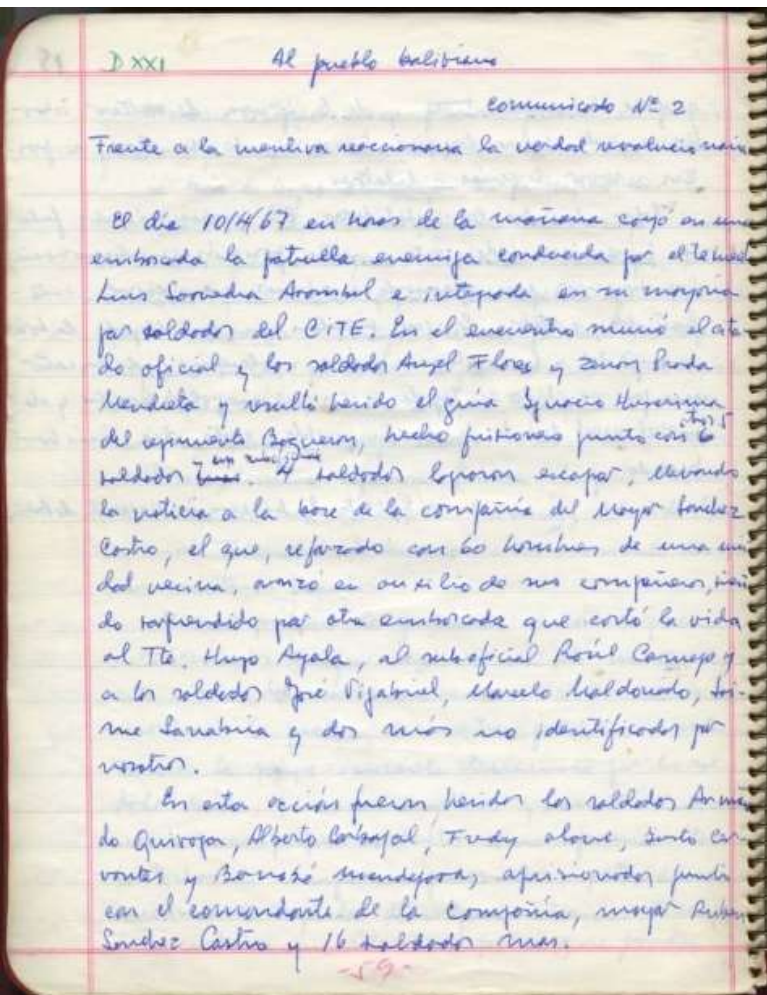 D XXI Al pueblo boliviano
Comunicado Nº 2
Frente a la mentira reaccionaria la verdad revolucionaria
El día 10/4/67 en horas de la mañana cayó en una
emboscada la patrulla enemiga conducida por el teniente
Luis Saavedra Arombal e integrada en su mayoría
por soldados del CITE. En el encuentro murió el cita
do oficial y los soldados Angel Flores y Zenon Prada
Mendieta y resultó herido el guía Ignacio Husarima
del regimiento Boqueron, hecho prisionero junto con otros 5
soldados y un suboficial. 4 soldados lograron escapar, llevando
la noticia a la base de la compañía del mayor Sanchez
Castro, el que, reforzado con 60 hombres de una uni
dad vecina, avanzó en auxilio de sus compañeros, sien
do sorprendido por otra emboscada que costó la vida
al Tte. Hugo Ayala, al suboficial Raúl Camejo y
a los soldados José Vijabriel, Marcelo Maldonado, Jai
me Sanabria y dos más no identificados por
nosotros.
En esta acción fueron heridos los soldados Arman
do Quiroga, Alberto Carbajal, Fredy Alove, Justo Cer
vantes y Bernabé Mandejara, aprisionados junto
con el comandante de la compañía, mayor Ruben
Sanchez Castro y 16 soldados mas.
-59-